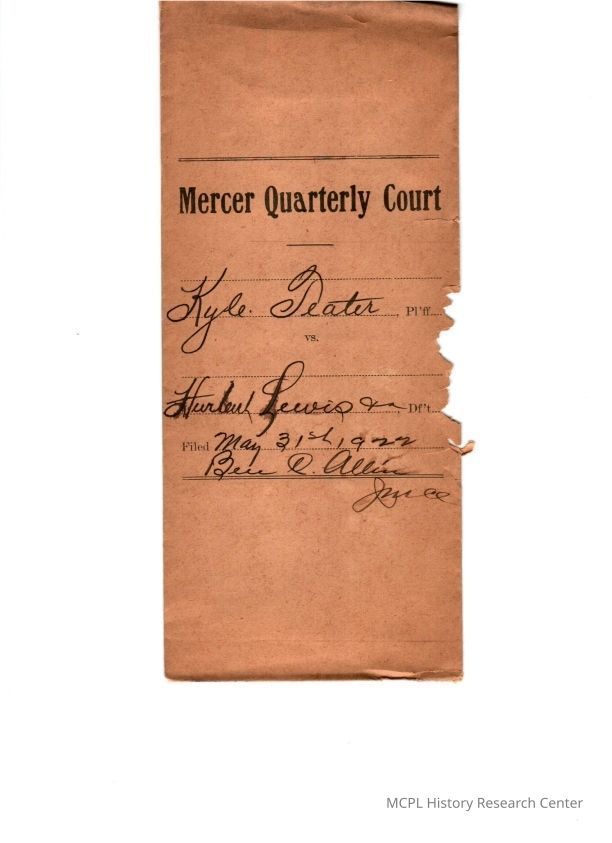 Mercer Quarterly Court
Kyle Teater, Pl'ff.
vs.
Lewis &c, Df't.
Filed May 31st, 1922
Ben C. Allin
MCPL History Research Center